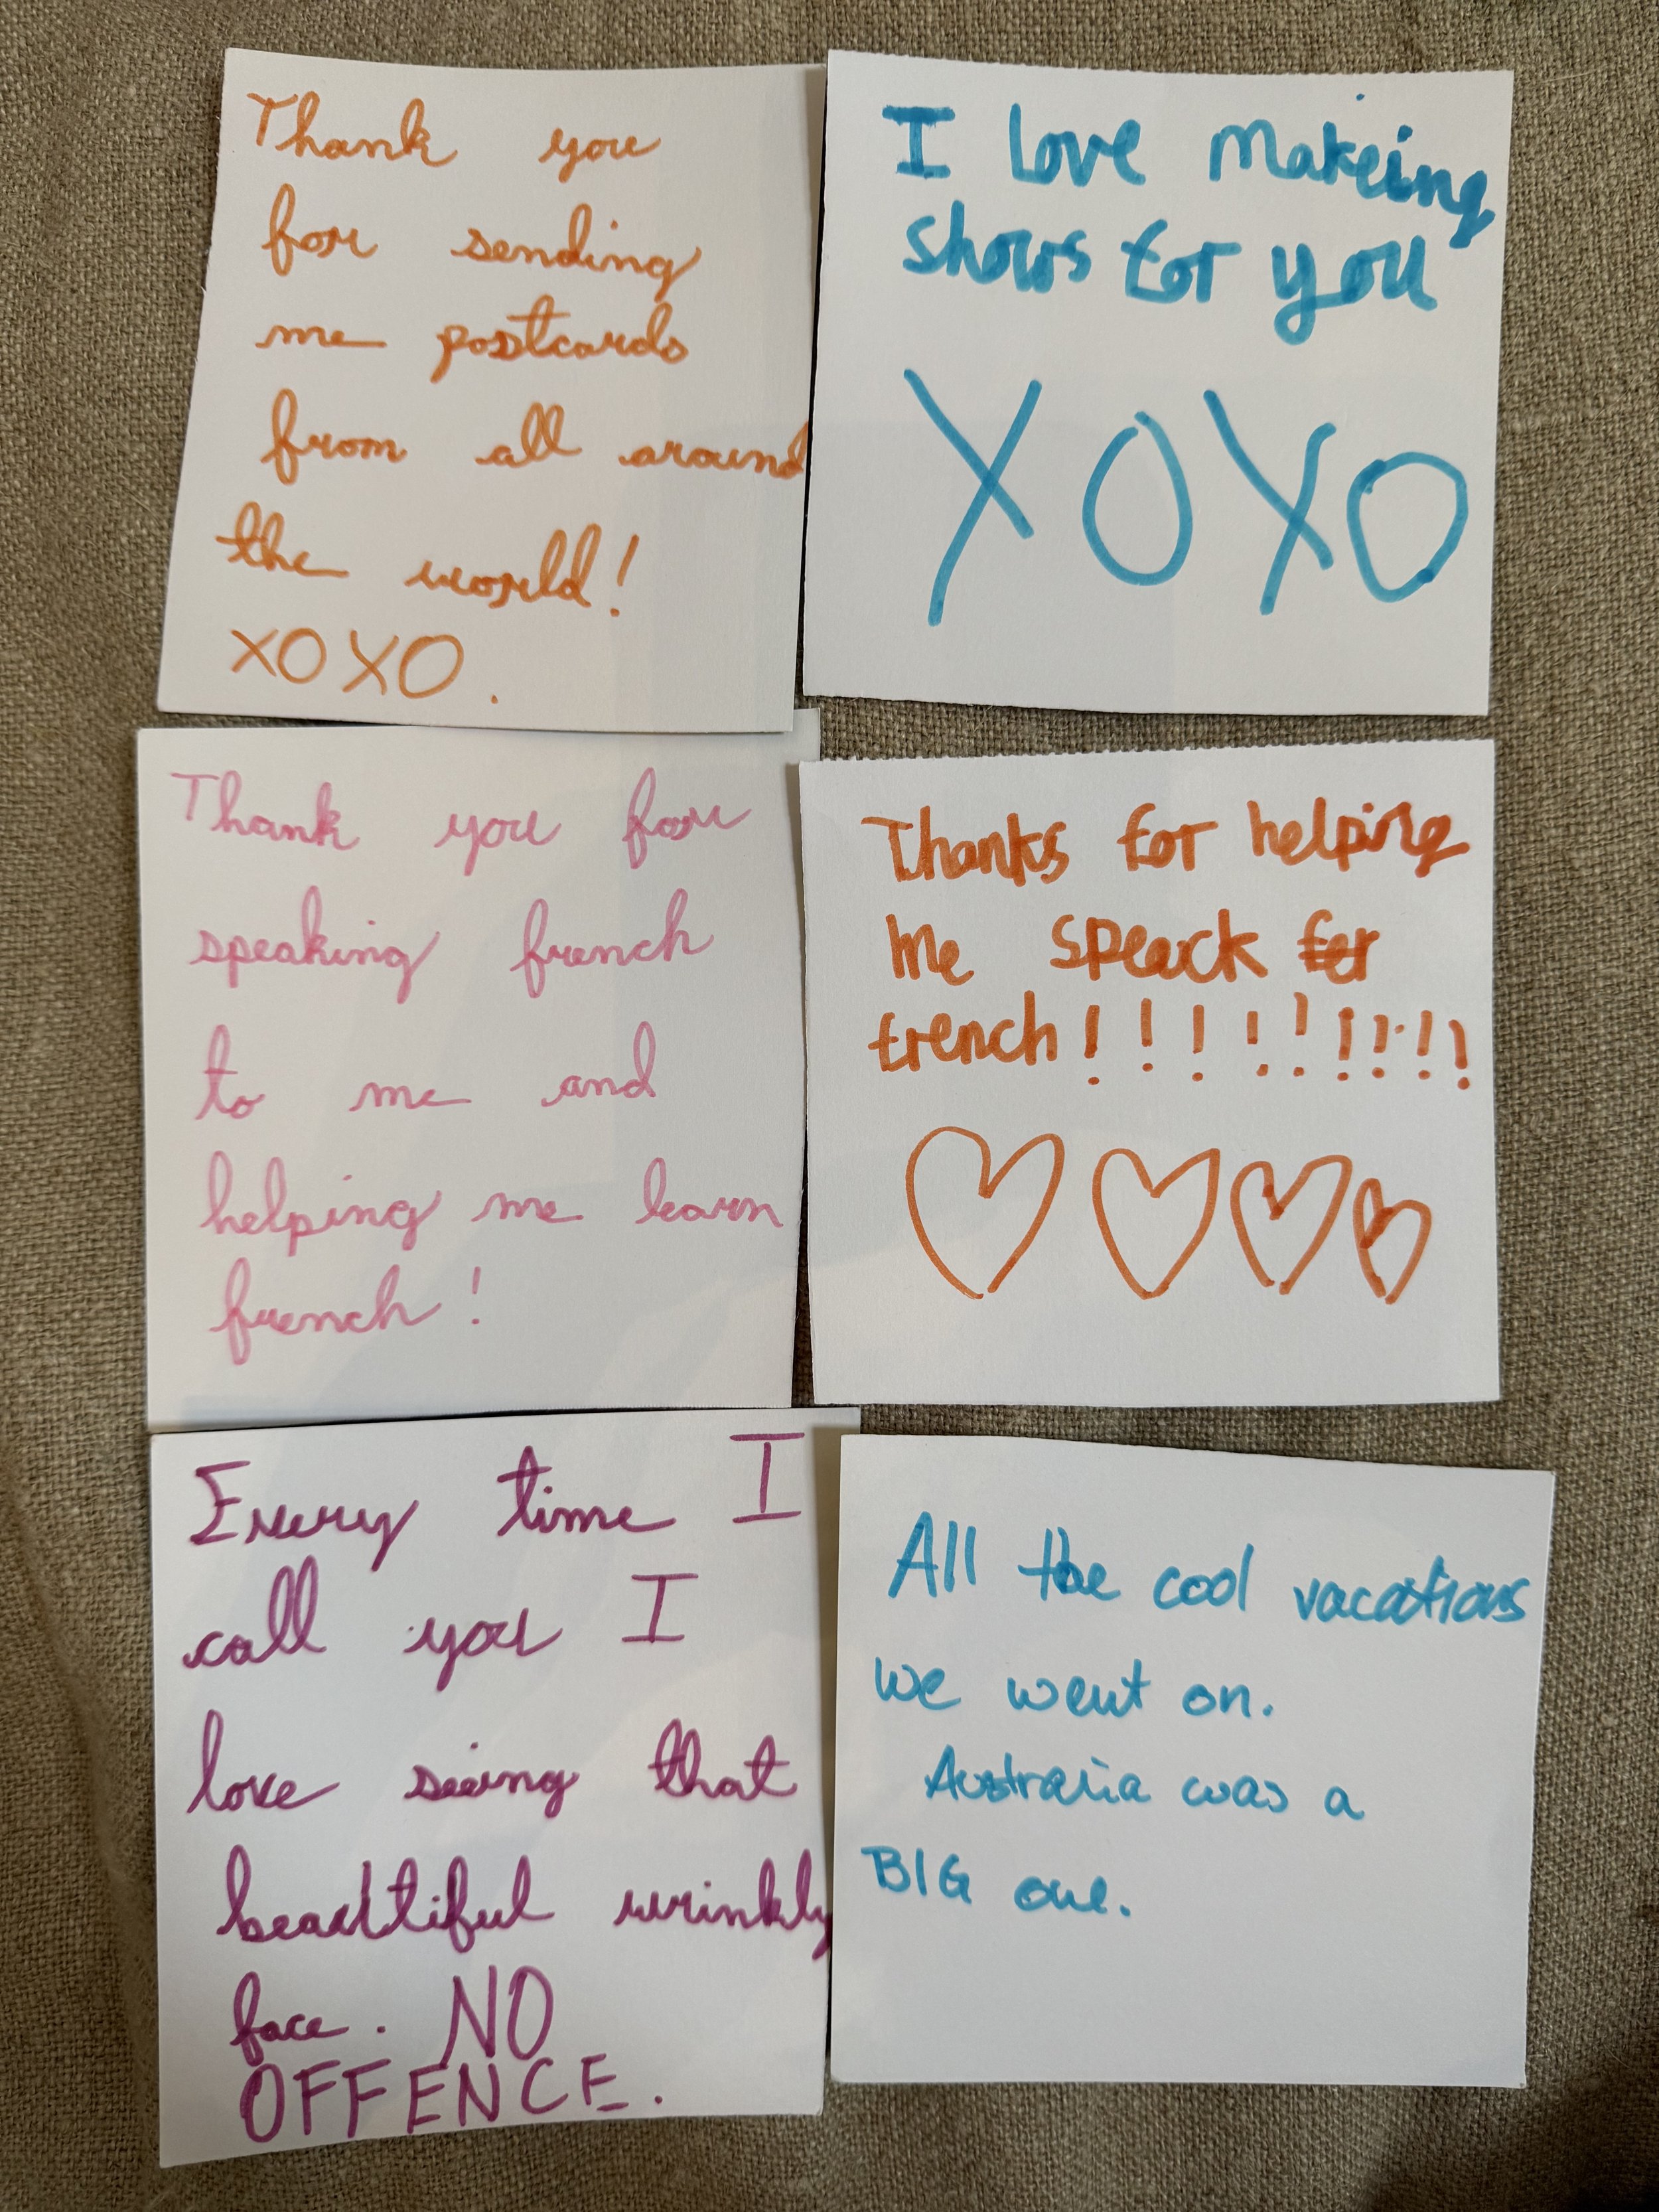 Thank you
for sending
me postcards
from all around
the world!
XOXO.
I love makeing
shows for you
XOXO
Thank you for
speaking french
to me and
helping me learn
french!
Thanks for helping
me speack fer
french!!!!!!!!!
Every time I
call you I
love seeing that
beautiful wrinkly
face. NO
OFFENCE.
All the cool vacations
we went on.
Australia was a
BIG one.